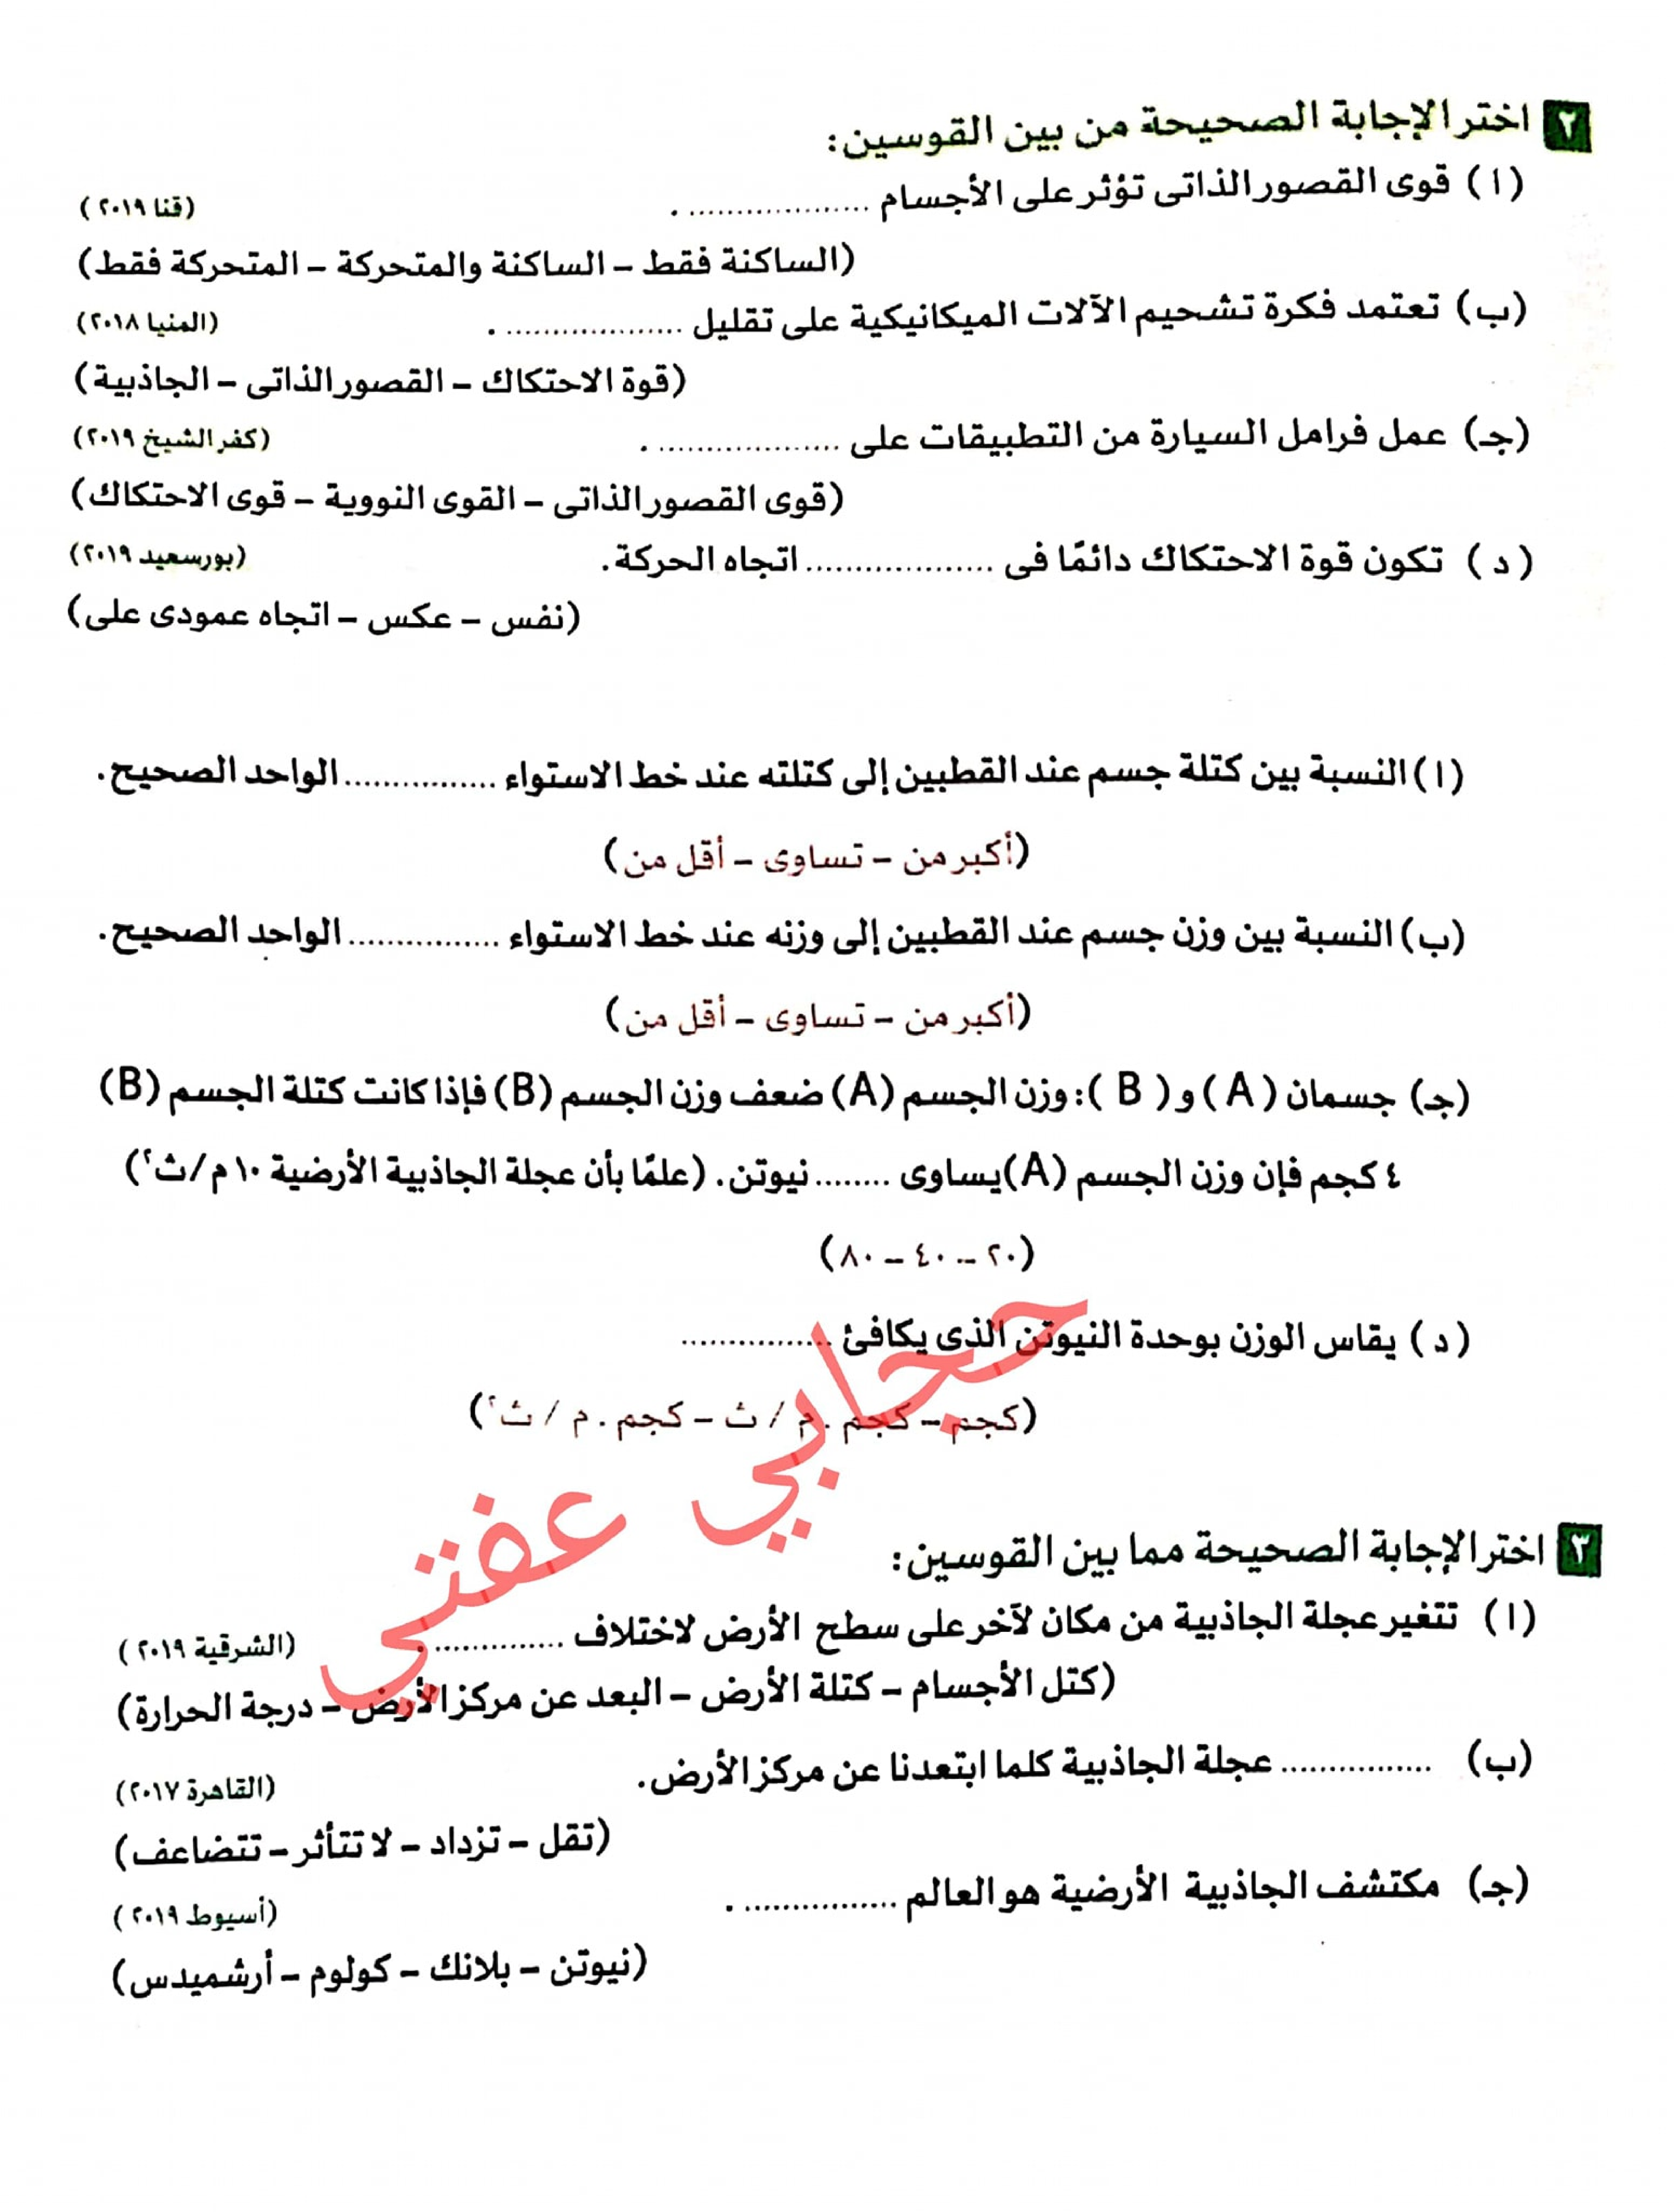 ٢ اختر الإجابة الصحيحة من بين القوسين:
(ا) قوى القصور الذاتى تؤثر على الأجسام .................... . (قنا ٢٠١٩)
(الساكنة فقط – الساكنة والمتحركة – المتحركة فقط)
(ب) تعتمد فكرة تشحيم الآلات الميكانيكية على تقليل .................... . (المنيا ٢٠١٨)
(قوة الاحتكاك – القصور الذاتى – الجاذبية)
(جـ) عمل فرامل السيارة من التطبيقات على .................... . (كفر الشيخ ٢٠١٩)
(قوى القصور الذاتى – القوى النووية – قوى الاحتكاك)
(د) تكون قوة الاحتكاك دائمًا فى .................... اتجاه الحركة. (بورسعيد ٢٠١٩)
(نفس – عكس – اتجاه عمودى على)
(ا) النسبة بين كتلة جسم عند القطبين إلى كتلته عند خط الاستواء ................ الواحد الصحيح.
(أكبر من – تساوى – أقل من)
(ب) النسبة بين وزن جسم عند القطبين إلى وزنه عند خط الاستواء ................ الواحد الصحيح.
(أكبر من – تساوى – أقل من)
(جـ) جسمان (A) و (B): وزن الجسم (A) ضعف وزن الجسم (B) فإذا كانت كتلة الجسم (B)
٤ كجم فإن وزن الجسم (A) يساوى ........ نيوتن. (علمًا بأن عجلة الجاذبية الأرضية ١٠ م/ث٢)
(٢٠ – ٤٠ – ٨٠)
(د) يقاس الوزن بوحدة النيوتن الذى يكافئ ................
(كجم – كجم . م / ث – كجم . م / ث٢)
حجابي عفتي
٣ اختر الإجابة الصحيحة مما بين القوسين:
(ا) تتغير عجلة الجاذبية من مكان لآخر على سطح الأرض لاختلاف ................ . (الشرقية ٢٠١٩)
(كتل الأجسام – كتلة الأرض – البعد عن مركز الأرض – درجة الحرارة)
(ب) ................ عجلة الجاذبية كلما ابتعدنا عن مركز الأرض. (القاهرة ٢٠١٧)
(تقل – تزداد – لا تتأثر – تتضاعف)
(جـ) مكتشف الجاذبية الأرضية هو العالم ................ . (أسيوط ٢٠١٩)
(نيوتن – بلانك – كولوم – أرشميدس)